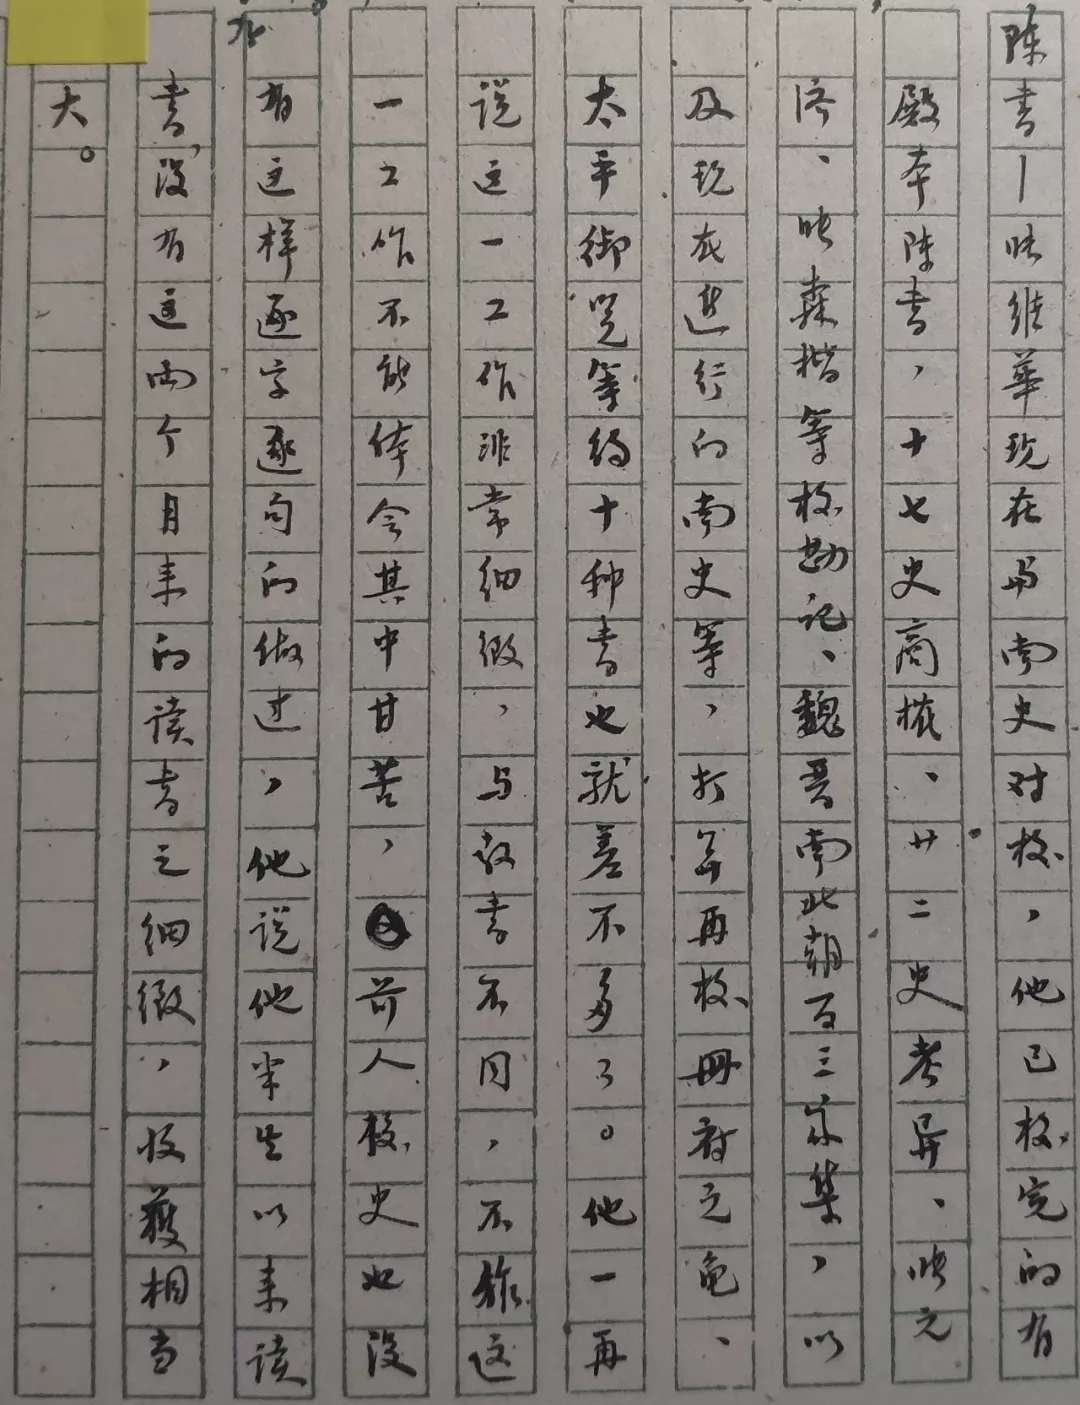 陈书—张维华现在与南史对校，他已校完的有
殿本陈书，十七史商榷、廿二史考异、张元
济、张森楷等校勘记、魏晋南北朝百三家集，以
及现在进行的南史等，打算再校册府元龟、
太平御览等约十种书也就差不多了。他一再
说这一工作非常细致，与教书不同，不做这
一工作不能体会其中甘苦，前人校史也没
有这样逐字逐句的做过，他说他半生以来读
书，没有这两个月来的读书之细致，收获相当
大。